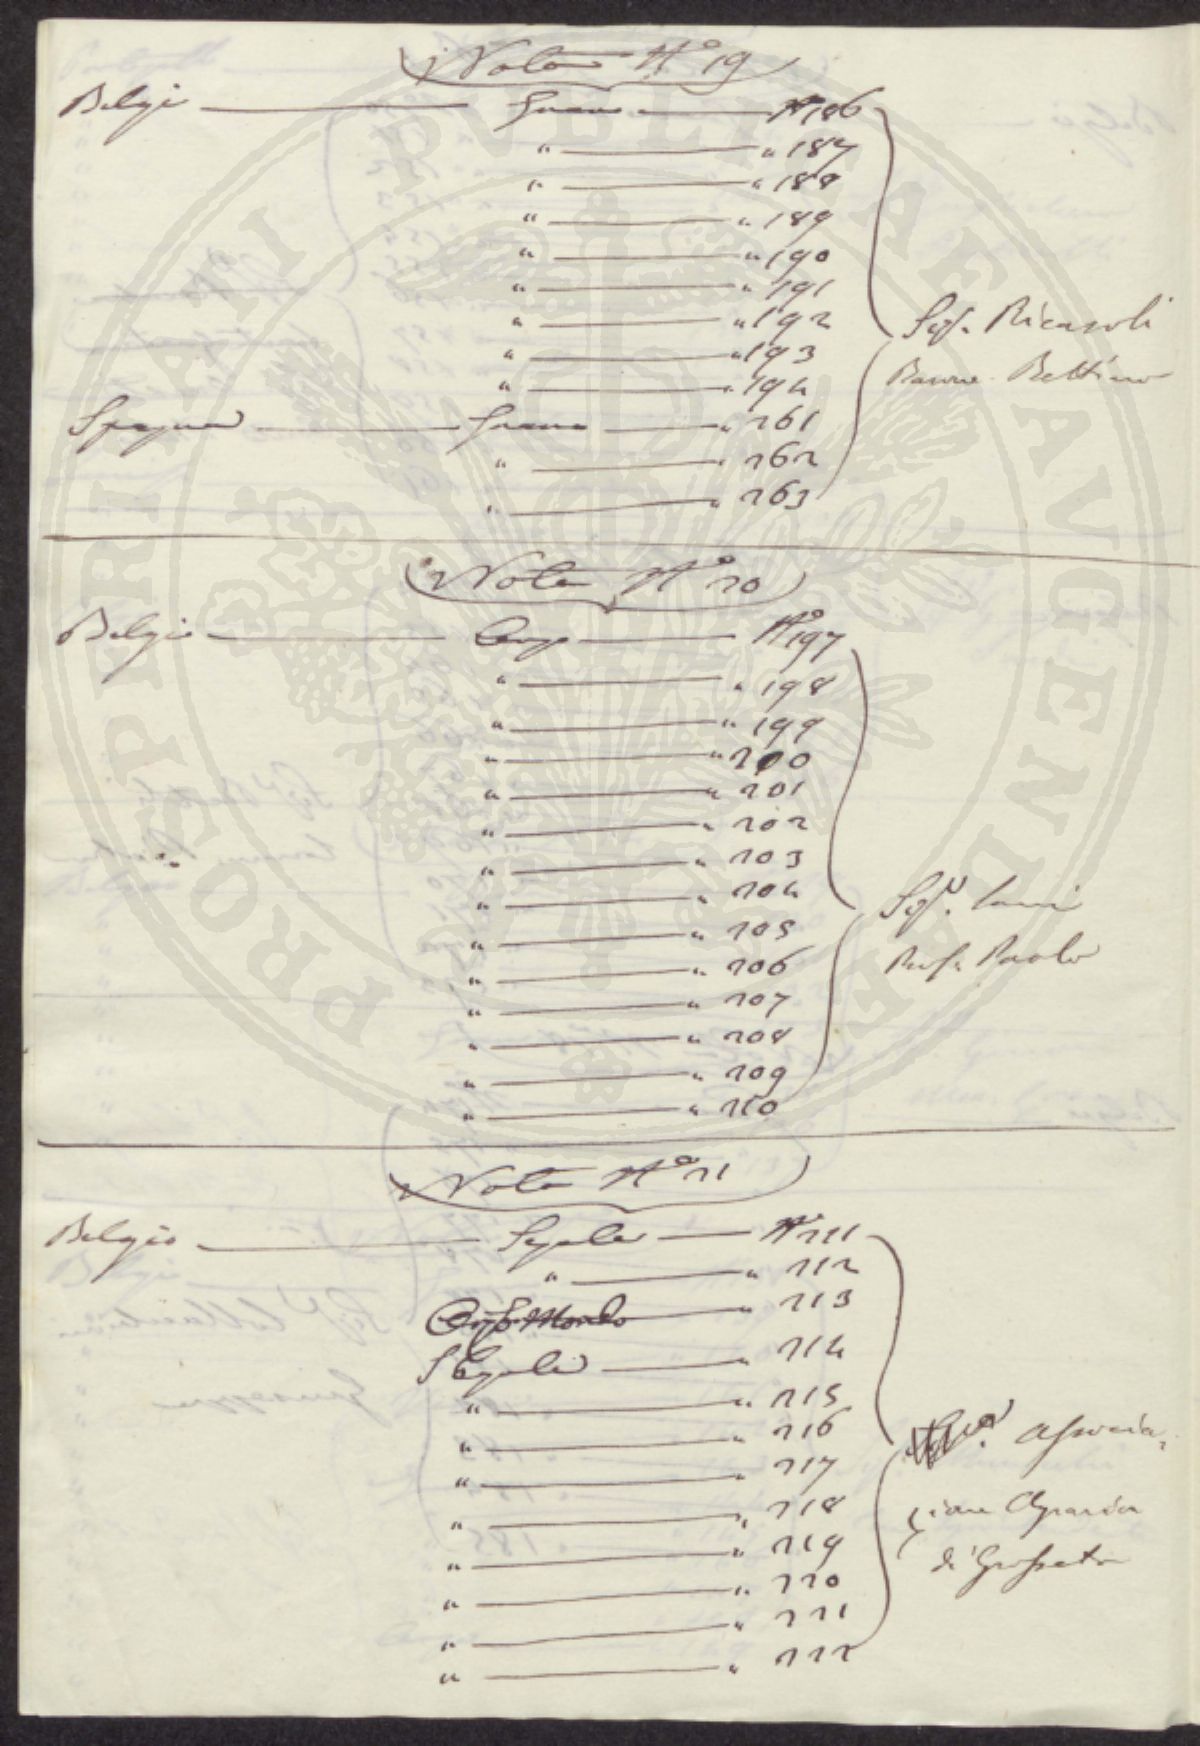 PROSPERITATI PVBLICAE AVGENDAE
Nota N° 19
Belgio Grano N° 186
" " 187
" " 188
" " 189
" " 190
" " 191
" " 192
" " 193
" " 194
Spagna Grano " 261
" " 262
" " 263
Sigr. Ricasoli
Barone Bettino
Nota N° 20
Belgio Orzo N° 197
" " 198
" " 199
" " 200
" " 201
" " 202
" " 203
" " 204
" " 205
" " 206
" " 207
" " 208
" " 209
" " 210
Sigr. Savi
Prof. Paolo
Nota N° 21
Belgio Segale N° 211
" " 212
Orzo Mondo " 213
Segale " 214
" " 215
" " 216
" " 217
" " 218
" " 219
" " 220
" " 221
" " 222
Associa=
zione Agraria
di Grosseto